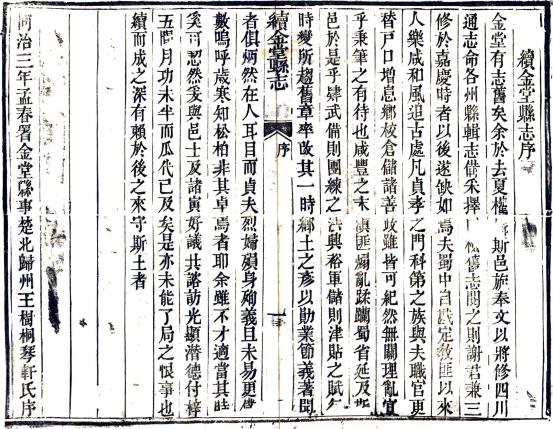 續金堂縣志序
金堂有志舊矣余於去夏權斯邑旋奉文以將修四川
通志命各州縣輯志備采擇檢舊志閱之則謝君兼三
修於嘉慶時者以後遂缺如焉夫蜀中自戡定教匪以來
人樂咸和風追古處凡貞孝之門科第之族與夫職官更
替戶口增息鄉校倉儲諸善政雖皆可紀然無關理亂宜
乎秉筆之有待也咸豐之末滇匪煽亂蹂躪蜀省延及斯
邑於是乎肆武備則團練之法興裕軍儲則津貼之賦行
時變所趨舊章率改其一時鄉土之彥以勛業節義著聞
續金堂縣志
序
一
者俱炳然在人耳目而貞夫烈婦殞身殉義且未易更僕
數嗚呼歲寒知松柏非其卓焉者耶余雖不才適當其時
奚可恝然爰與邑士及諸寅好議共諮訪光顯潛德付梓
五閱月功未半而瓜代已及矣是亦未能了局之恨事也
續而成之深有賴於後之來守斯土者
同治三年孟春署金堂縣事楚北歸州王樹桐琴軒氏序